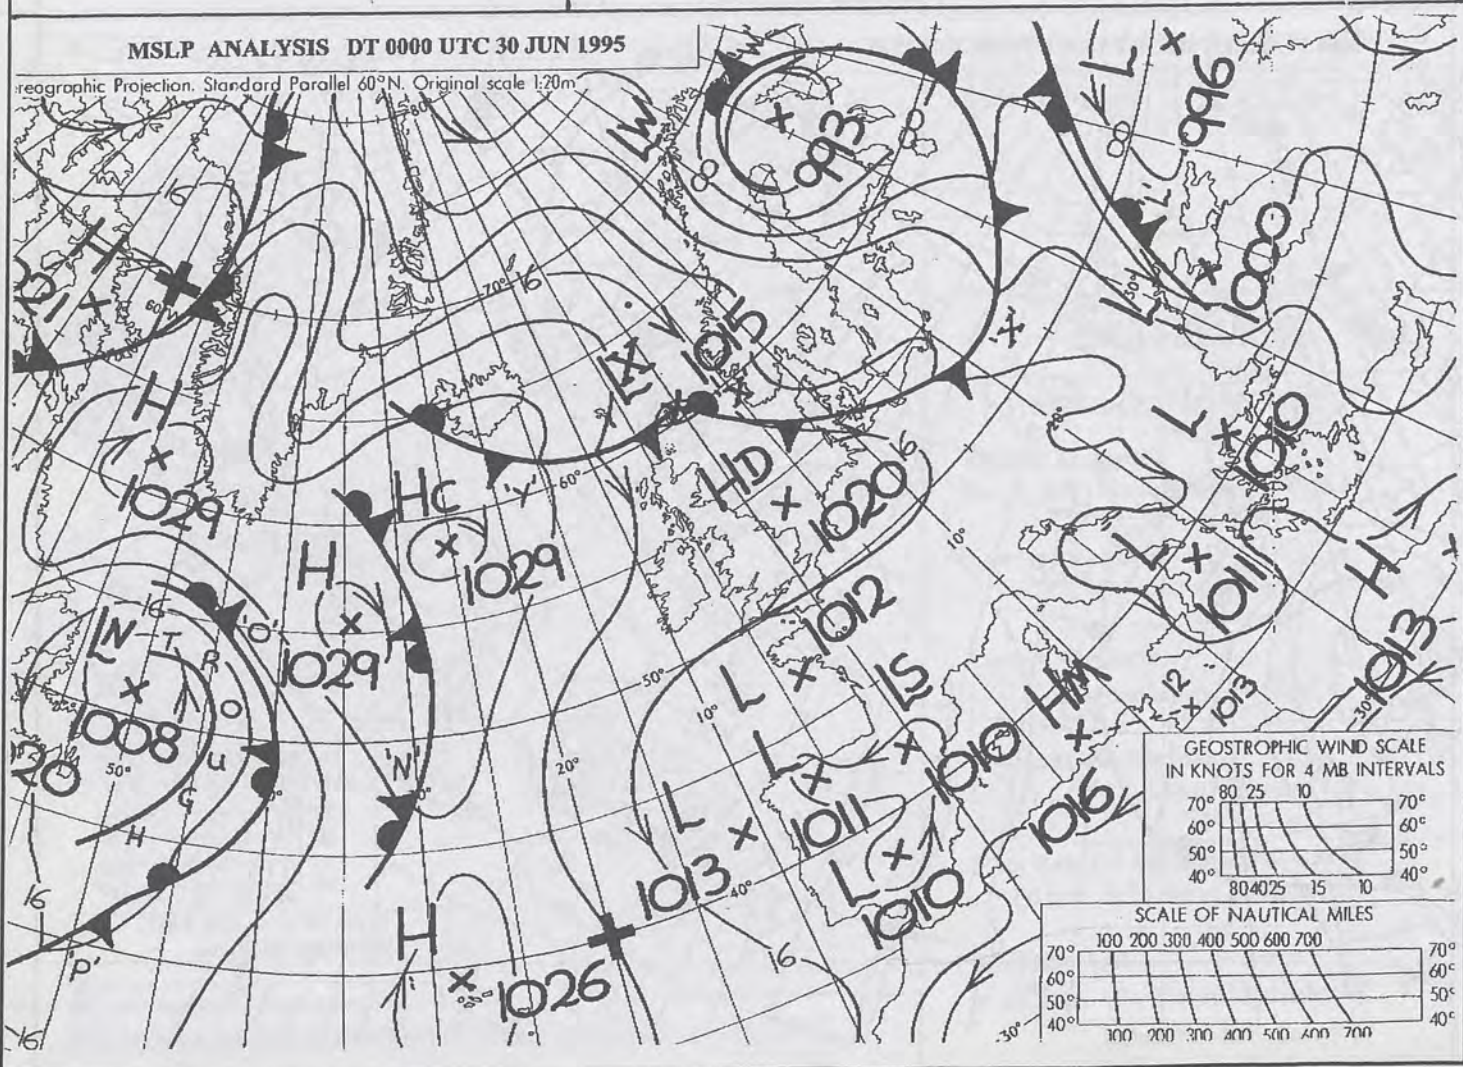 MSLP ANALYSIS DT 0000 UTC 30 JUN 1995
reographic Projection. Standard Parallel 60°N. Original scale 1:20m
80°
LW
993
8
8
L
996
8
'L'
16
H
21
60°
70°
16
1015
LX
L
30°
1000
H
1029
'Y'
60°
HC
1029
HD
1020
16
10°
20°
L
1010
L
1011
H
1013
30°
H
1029
16
'O'
LN
T R O U G H
1008
20
50°
'N'
20°
50°
10°
L
1012
LS
1010
HM
1016
12
1013
L
1011
L
1013
40°
L
1010
16
H
1026
16
'P'
16
30°
GEOSTROPHIC WIND SCALE
IN KNOTS FOR 4 MB INTERVALS
80 25 10
70° 70°
60° 60°
50° 50°
40° 40°
80 40 25 15 10
SCALE OF NAUTICAL MILES
100 200 300 400 500 600 700
70° 70°
60° 60°
50° 50°
40° 40°
100 200 300 400 500 600 700